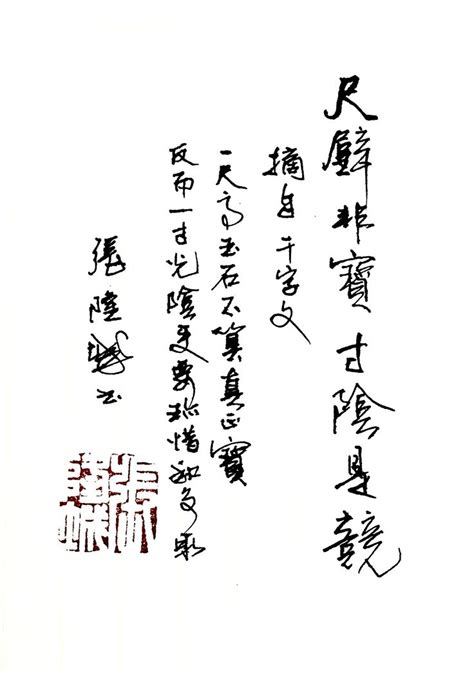 尺璧非寶寸陰是競
摘自千字文
一尺高玉石不算真正寶
反而一寸光陰更要珍惜和爭取
張隆 書